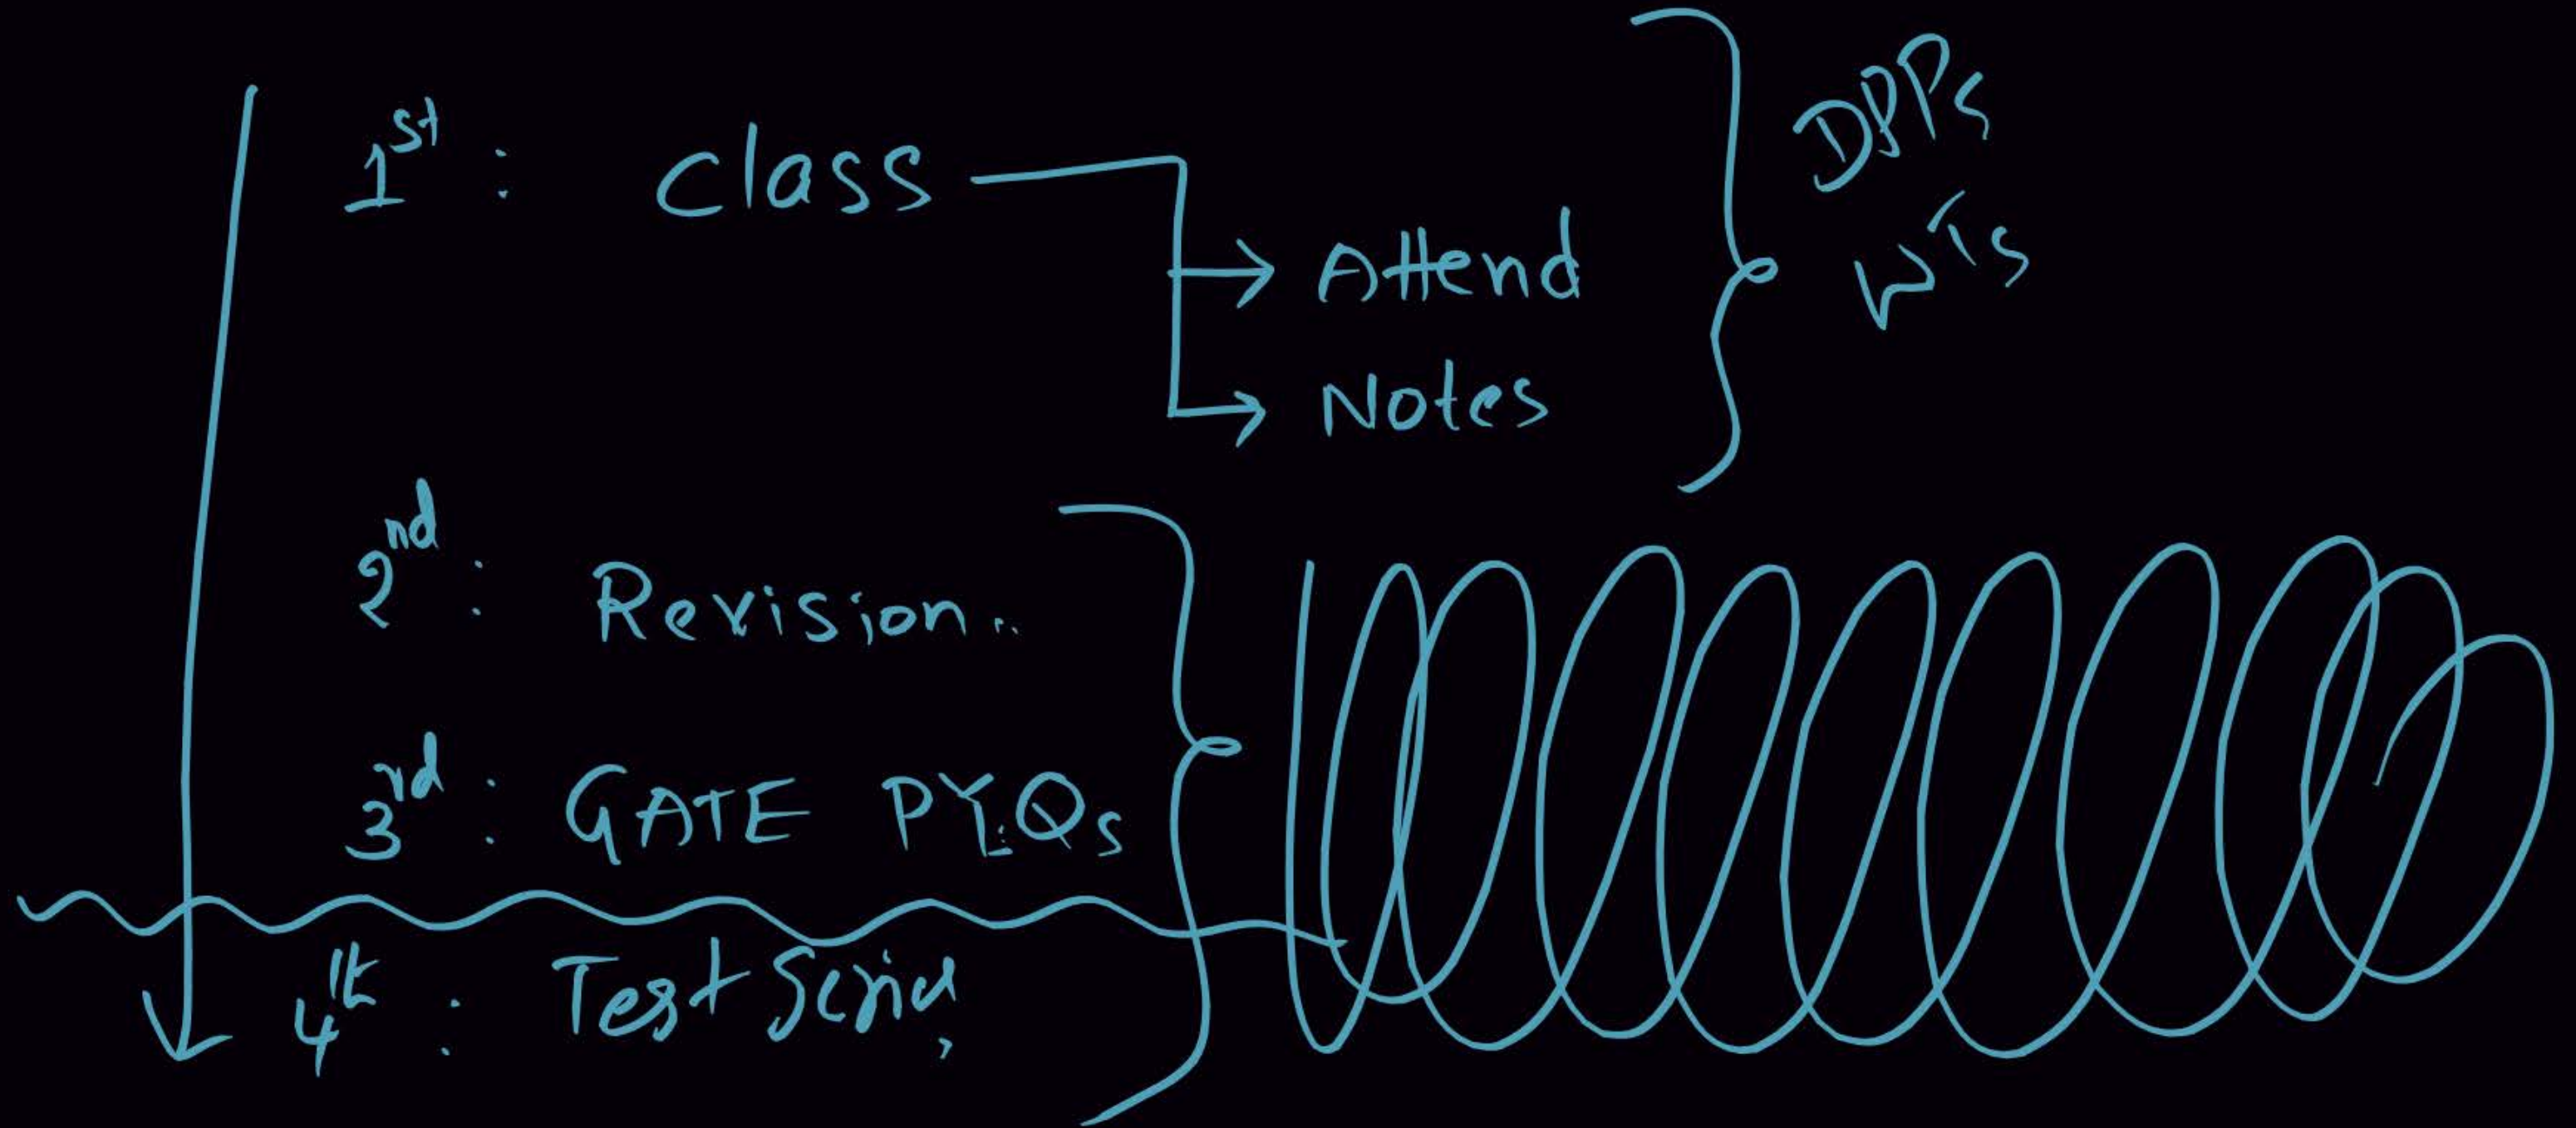 1st : Class
Attend
Notes
DPPs
WTs
2nd : Revision..
3rd : GATE PYQs
4th : Test Series